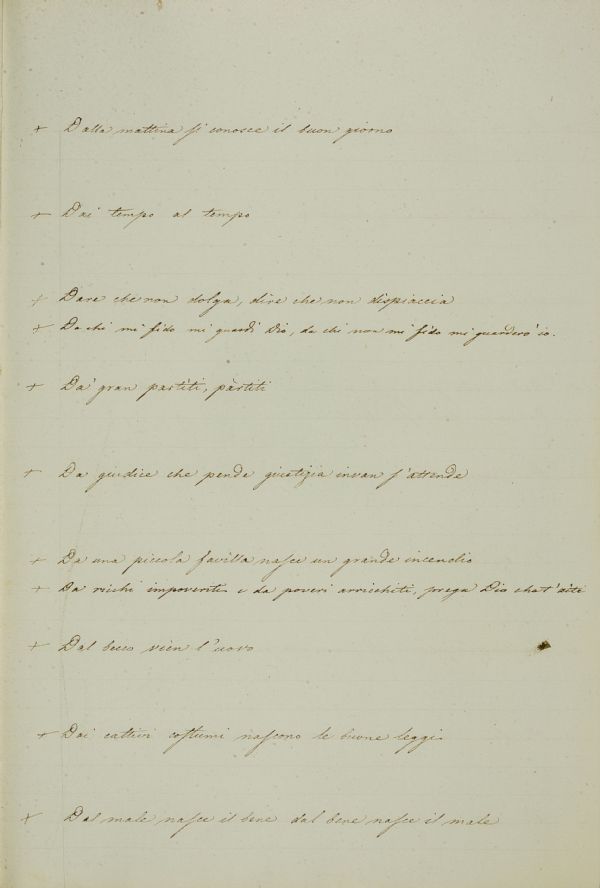 + Dalla mattina si conosce il buon giorno
+ Dai tempo al tempo
+ Dare che non dolga, dire che non dispiaccia
+ Da chi mi fido mi guardi Dio, da chi non mi fido mi guarderò io.
+ Da' gran partiti, partiti
+ Da giudice che pende giustizia invan s'attende
+ Da una piccola favilla nasce un grande incendio
+ Da ricchi impoveriti e da poveri arricchiti, prega Dio che t'aiti
+ Dal becco vien l'uovo
+ Dai cattivi costumi nascono le buone leggi
+ Dal male nasce il bene dal bene nasce il male